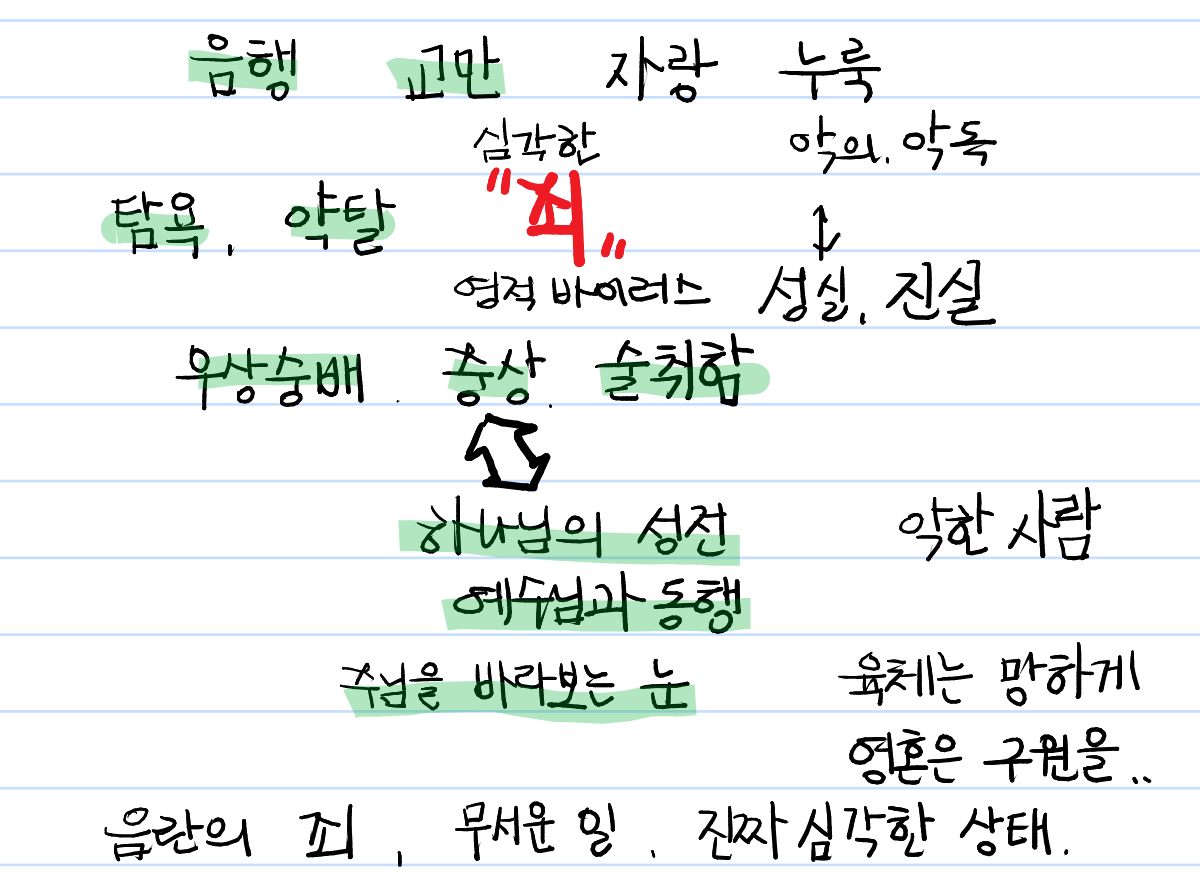 음행 교만 자랑 누룩
심각한 악의. 악독
탐욕, 약탈 "죄"
영적 바이러스 성실, 진실
우상숭배. 중상. 술취함
하나님의 성전 악한 사람
예수님과 동행
주님을 바라보는 눈 육체는 망하게
영혼은 구원을..
음란의 죄, 무서운 일. 진짜 심각한 상태.